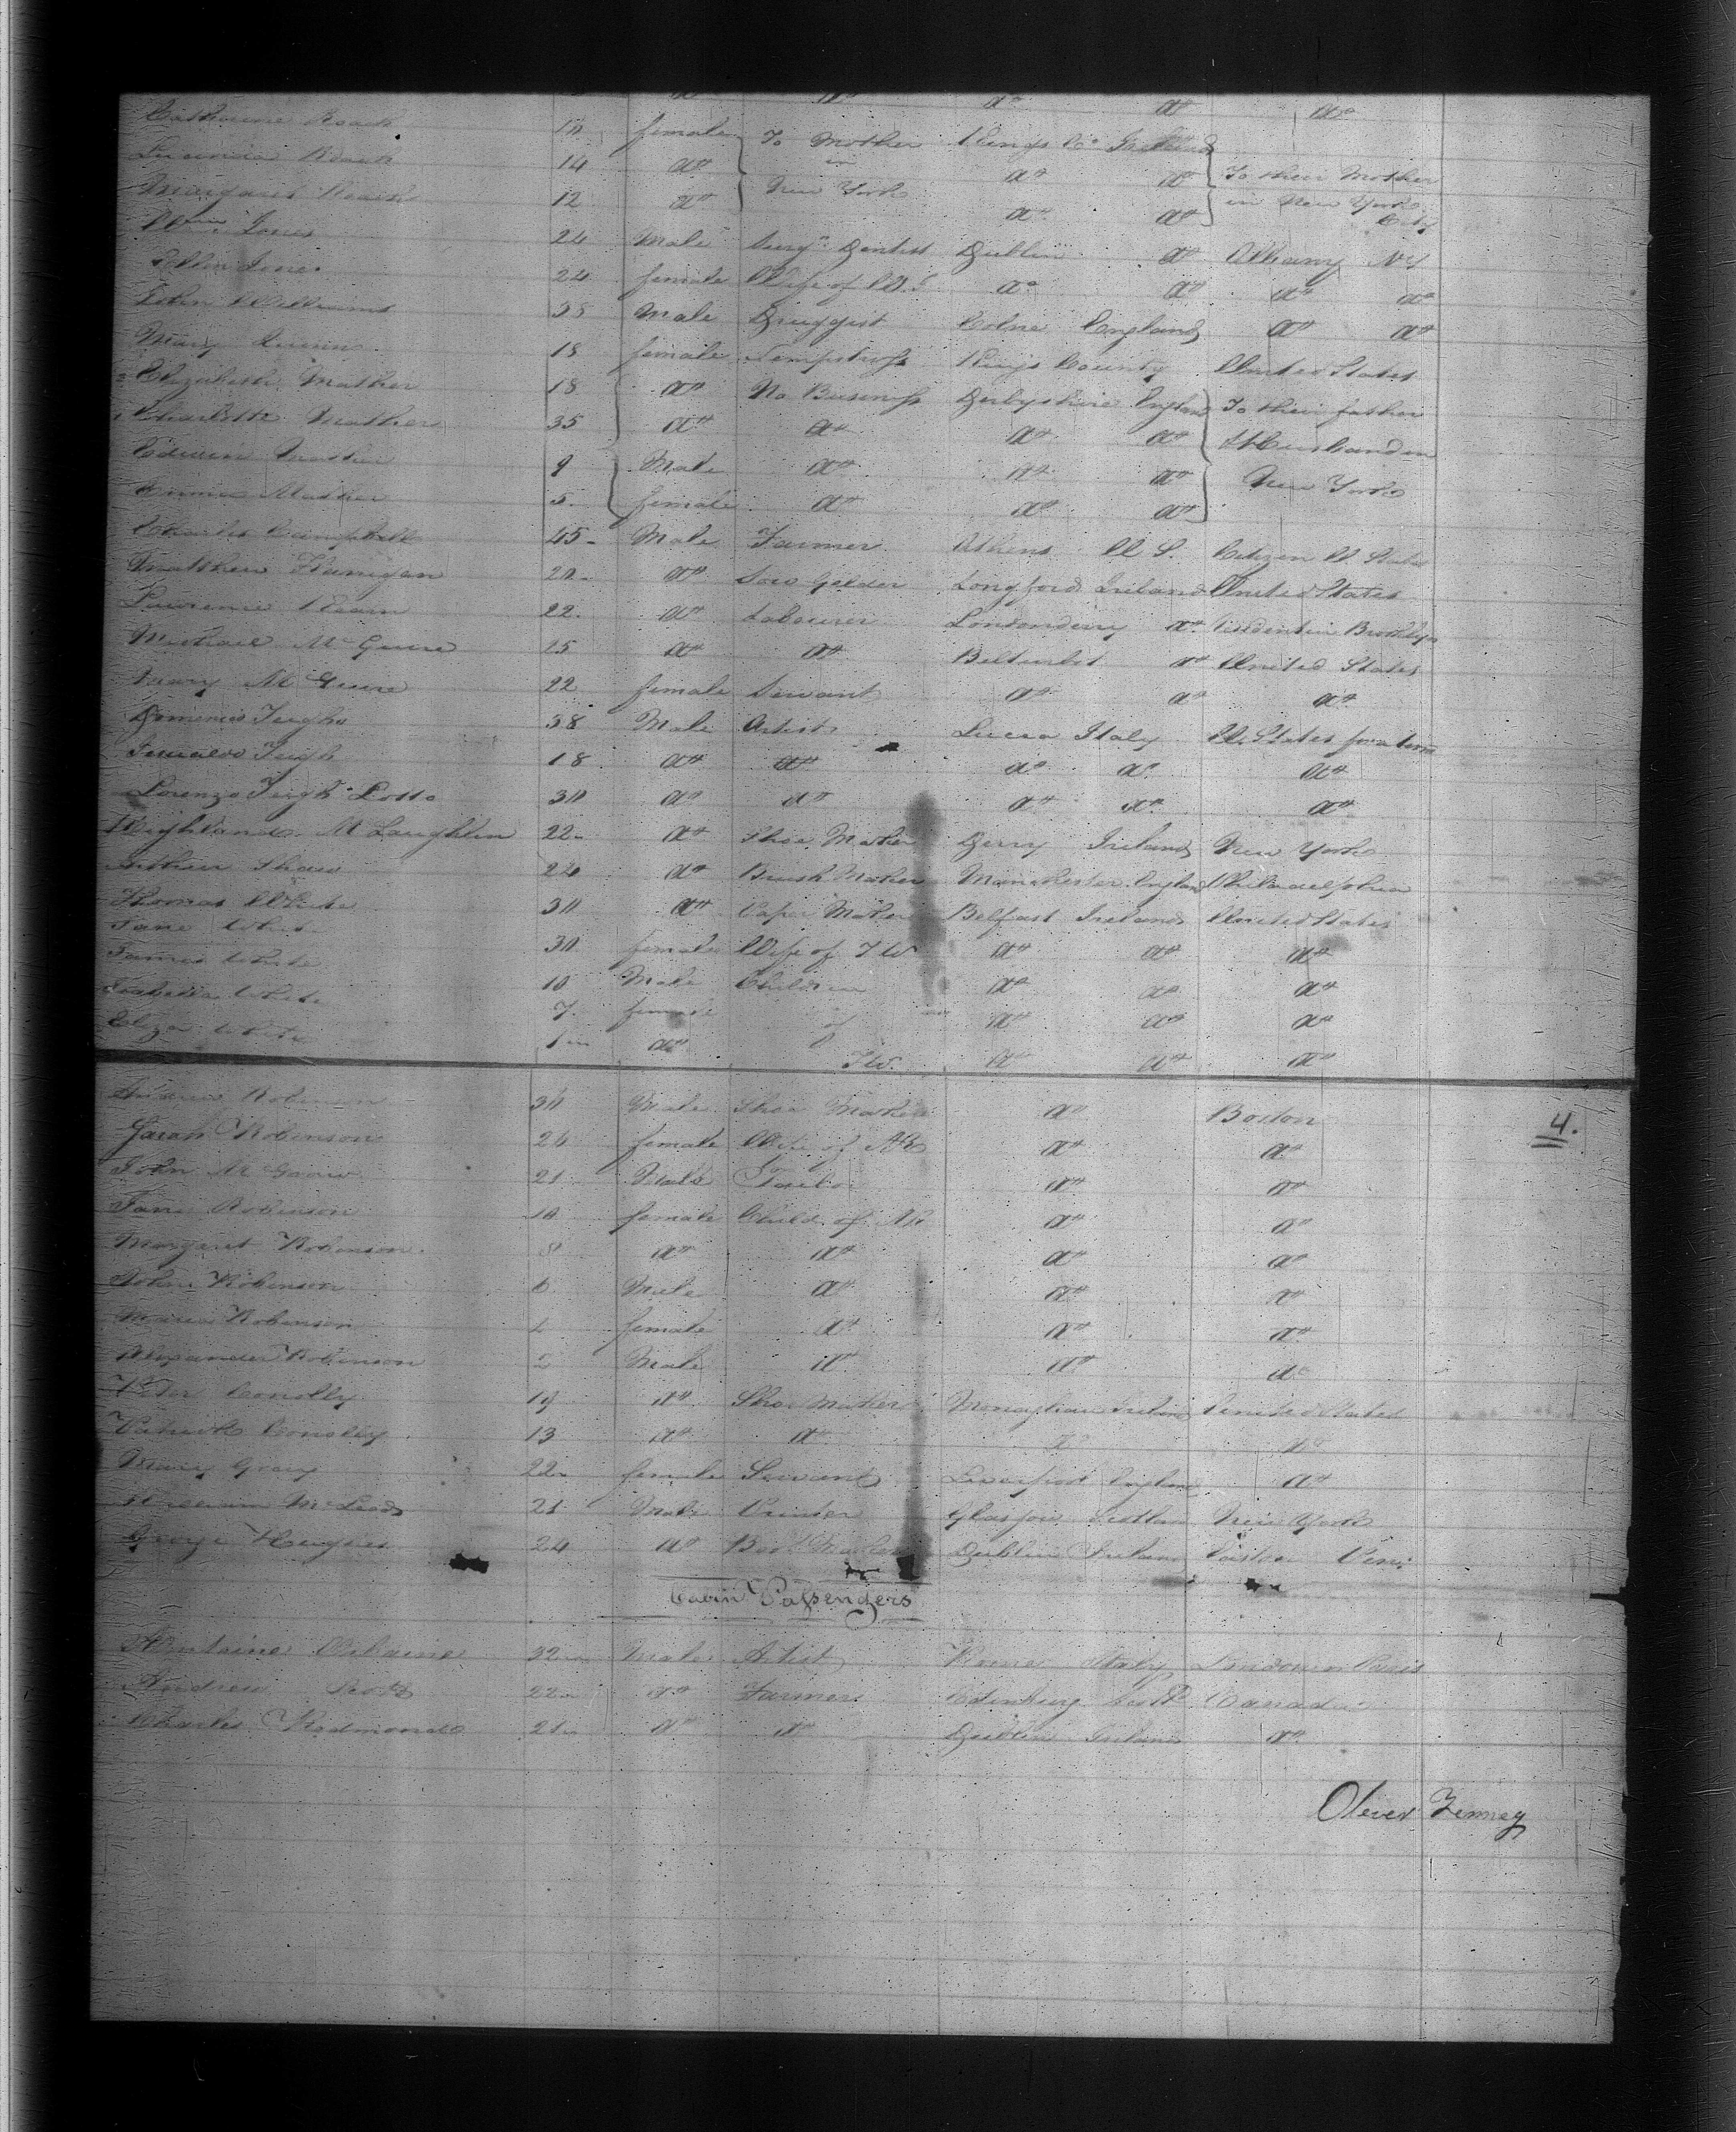 do do do do do
Catherine Roach 10 female To Mother Kings Co Ireland
Lucinda Roach 14 do in do do To their Mother
Margaret Roach 12 do New York do do in New York City
Wm Jones 24 Male Surgn Dentist Dublin do Albany NY
Ellen Jones 24 female Wife of W.J. do do do do
John Williams 38 Male Druggist Colne England do do
Mary 18 female Sempstress Kings County United States
Elizabeth Mather 18 do No Business Derbyshire England To their father
Charlotte Mather 35 do do do do & Husband in
Edwin Mather 9 Male do do do New York
Mather 5 female do do do
Charles Campbell 45 Male Farmer Athens U S. Citizen U States
Matthew Flanigan 20 do Sow Gelder Longford Ireland United States
Lawrence 22 do Labourer Londonderry do Resident in Brooklyn
Michael McGuire 25 do do Belturbet do United States
Mary McGuire 22 female Servant do do do
Domenico 38 Male Artist Lucca Italy U. States
18 do do do do do
Lorenzo 30 do do do do do
Highland McLaughlin 22 do Shoe Maker Derry Ireland New York
Arthur Shaw 22 do Brush Maker Manchester England Philadelphia
Thomas White 30 do Paper Maker Belfast Ireland United States
Jane White 30 female Wife of T W do do do
James White 10 Male Children do do do
Isabella White 7 female of do do do
Eliza White do T W. do do do
Andrew Robinson 30 Male Shoe Maker do Boston
4.
Sarah Robinson 26 female Wife of AR do do
John 21 Male Tailor do do
Jane Robinson 10 female Child of AR do do
Margaret Robinson 8 do do do do
John Robinson 6 Male do do do
Maria Robinson female do do do
Alexander Robinson 2 Male do do do
Peter Conolly 19 do Shoe Maker Monaghan Ireland United States
Patrick Conolly 13 do do do do
Mary Gray 22 female Servant Liverpool England do
William McLeod 21 Male Printer Glasgow Scotland New York
George Hughes 24 do Boot Maker Dublin Ireland Easton Penn
Cabin Passengers
Antoine 32 Male Artist Rome Italy London or Paris
Andrew Scott 22 do Farmer Edinburg Scotd Canada
Charles Redmond 21 do do Dublin Ireland do
Oliver Zenney